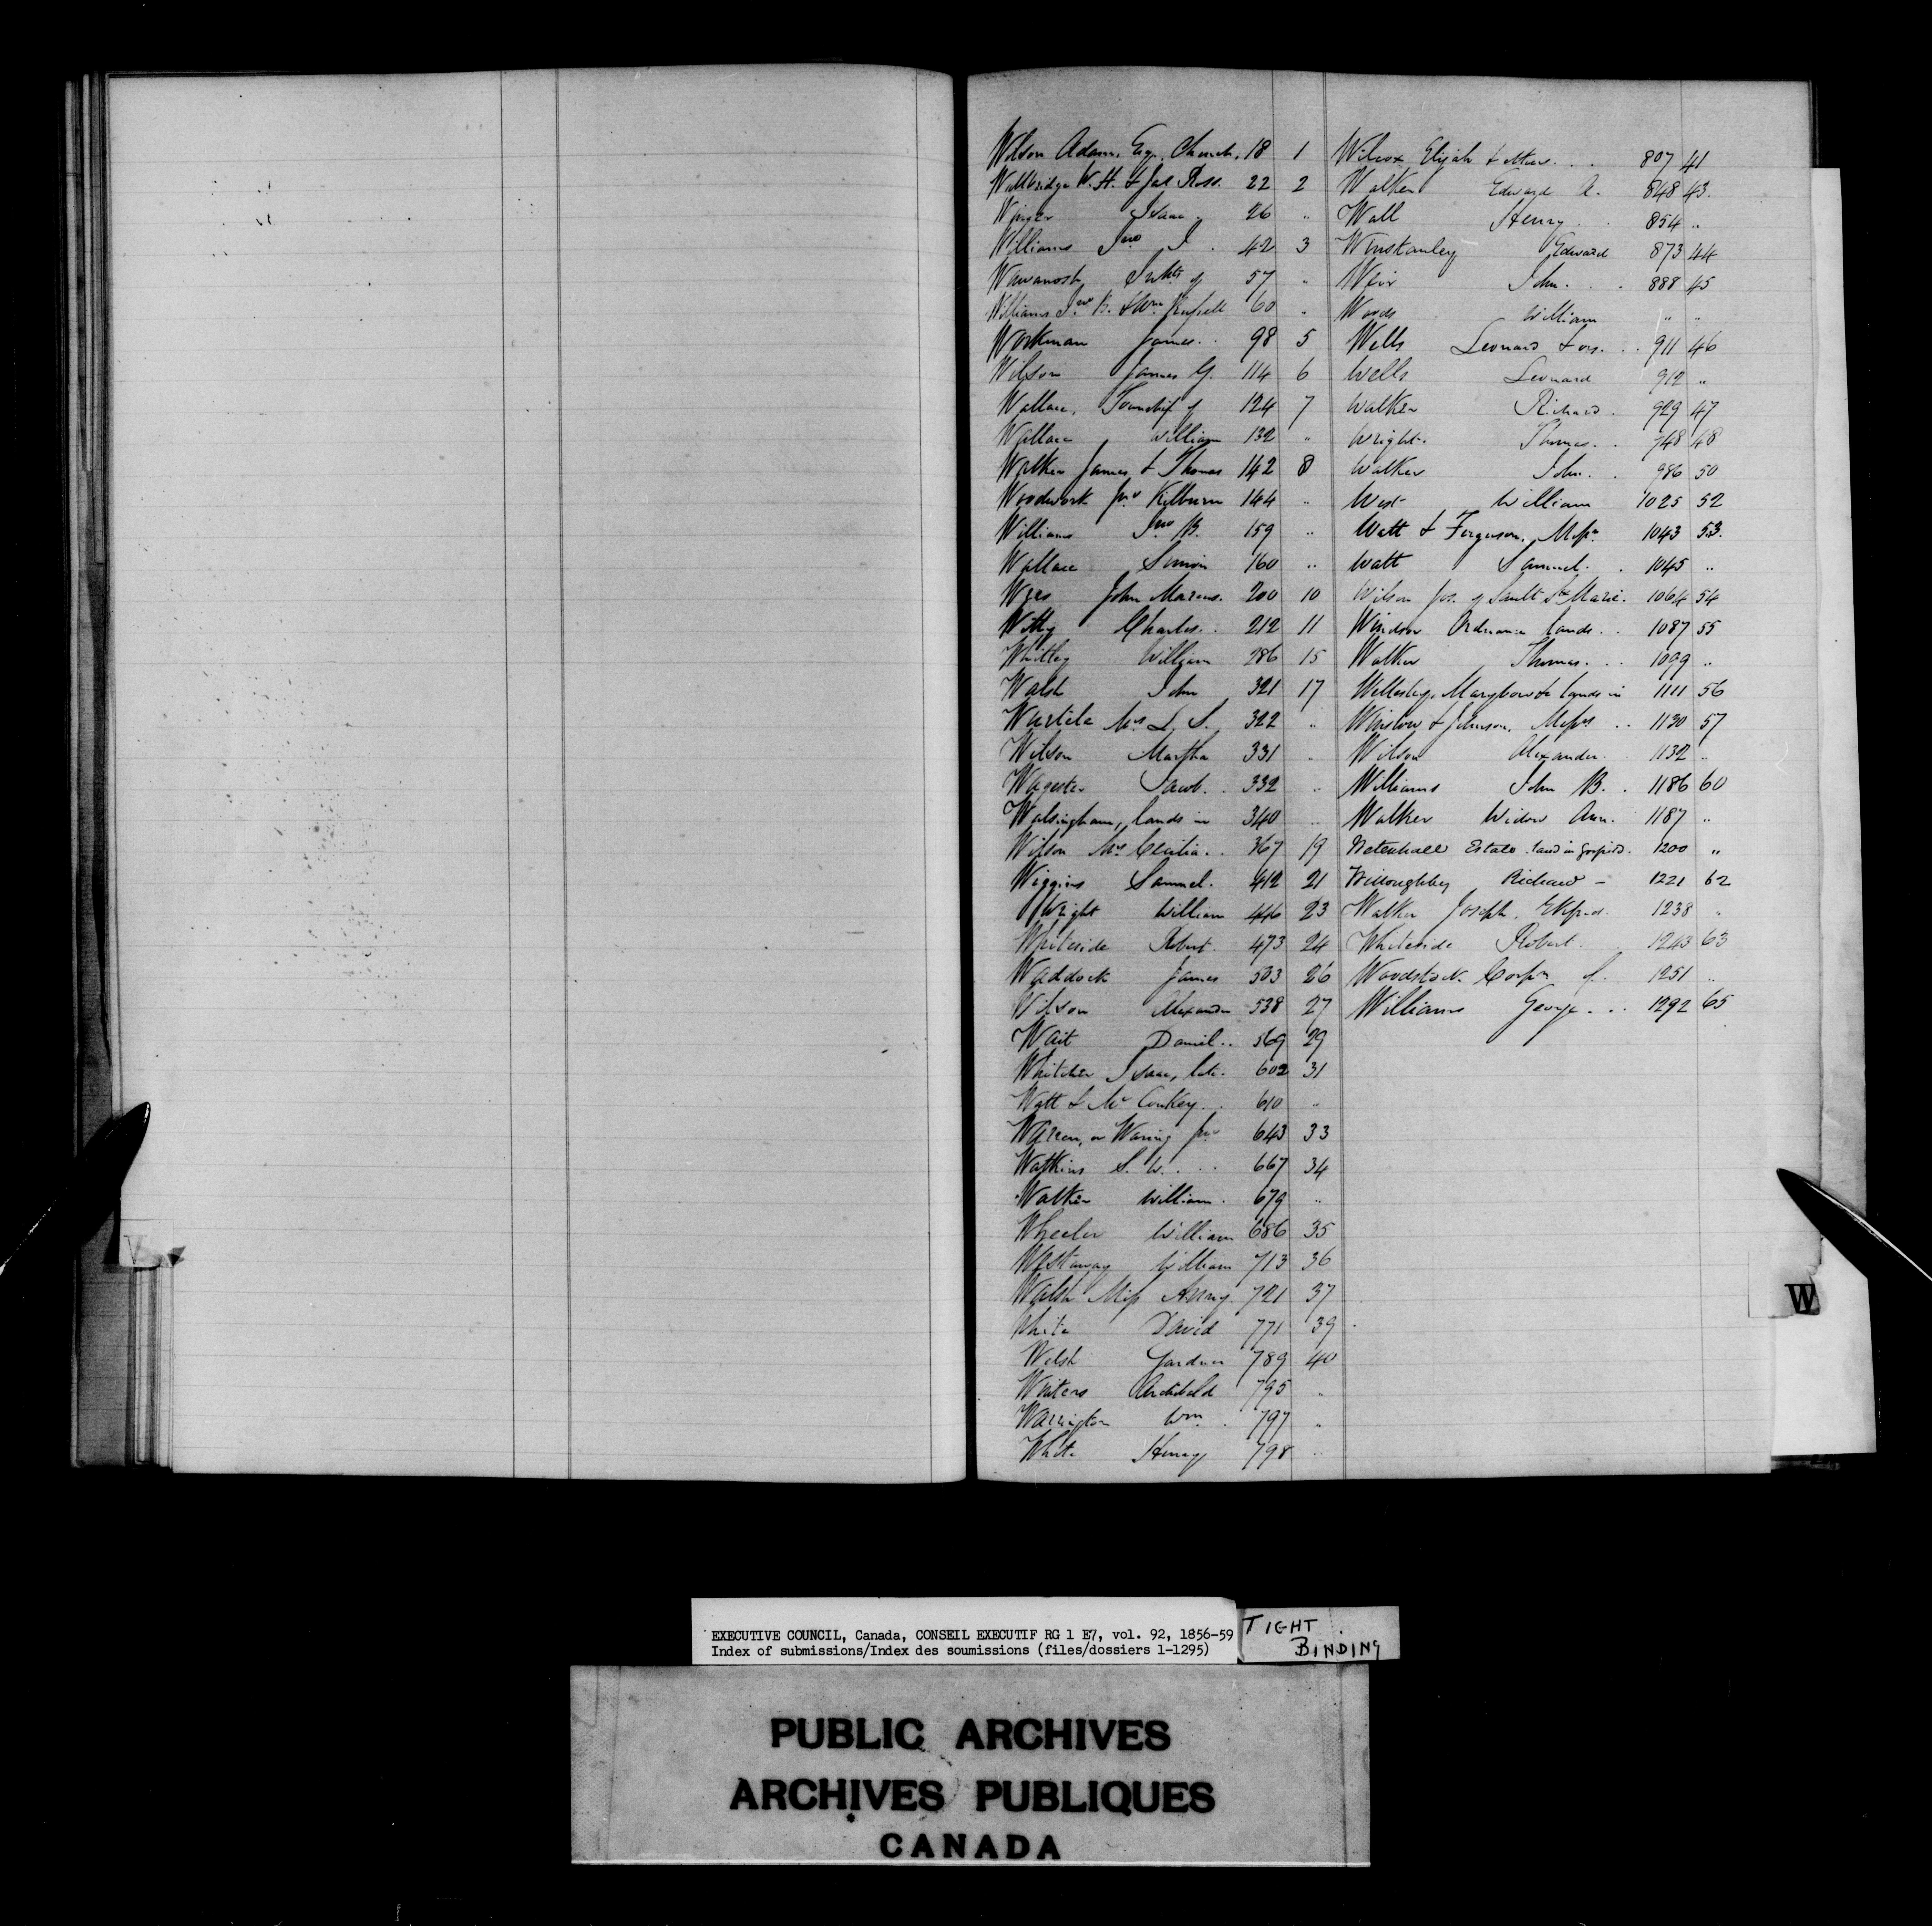 Wilson Adam, Esq. Church, 18 1
Wallbridge W. H. & Jas Ross. 22 2
Isaac 26 "
Williams Jno J. 42 3
Wawanosh, of 57 "
Williams Jno B. & Wm Russell 60 "
Workman James. 98 5
Wilson James G. 114 6
Wallace, Township of 124 7
Wallace William 132 "
Walker James & Thomas 142 8
Jno Kilburn 144 "
Williams Jno B. 159 "
Wallace Simon 160 "
John Marcus. 200 10
Witty Charles. 212 11
Whitley William 286 15
Walsh John 321 17
Wurtele Mrs L. S. 322 "
Wilson Martha 331 "
Wagester Jacob. 332 "
Walsingham, lands in 340 "
Wilson Mrs Cecilia. 367 19
Wiggins Samuel. 412 21
Wright William 446 23
Whiteside Robert. 473 24
Waddock James 503 26
Wilson Alexander 538 27
Wait Daniel.. 569 29
Whitcher Isaac, late. 602 31
Watt & McConkey. 610 "
Warren, or Waring Jno 643 33
Watkins S. W. ... 667 34
Walker William. 679 "
Wheeler William 686 35
Westaway William 713 36
Walsh Miss 721 37
White David 771 39
Welsh Gardner 789 40
Winters Archibald 795 "
Warrington Wm. 797 "
White Henry 798 "
Wilcox Elijah & others... 807 41
Walker Edward A. 848 43.
Wall Henry. 854 "
Winstanley Edward 873 44
Weir John... 888 45
Woods William " "
Wells Leonard & ors... 911 46
Wells Leonard 912 "
Walker Richard. 929 47
Wright. Thomas.. 948 48
Walker John.. 986 50
West William 1025 52
Watt & Ferguson, Messrs 1043 53.
Watt Samuel.. 1045 "
Wilson Jos. of Sault Ste Marie. 1064 54
Windsor Ordnance lands.. 1087 55
Walker Thomas... 1099 "
Wellesley, Maryboro & lands in 1111 56
Winslow & Johnson, Messrs .. 1130 57
Wilson Alexander. 1132 "
Williams John B. . 1186 60
Walker Widow Ann. 1187 "
Wetenhall Estate land in 1200 "
Willoughby Richard - 1221 62
Walker Joseph, 1238 "
Whiteside Robert. 1243 63
Woodstock Corpn of. 1251 "
Williams George... 1292 65
V
W
EXECUTIVE COUNCIL, Canada, CONSEIL EXECUTIF RG 1 E7, vol. 92, 1856-59
Index of submissions/Index des soumissions (files/dossiers 1-1295)
TIGHT
BINDING
PUBLIC ARCHIVES
ARCHIVES PUBLIQUES
CANADA